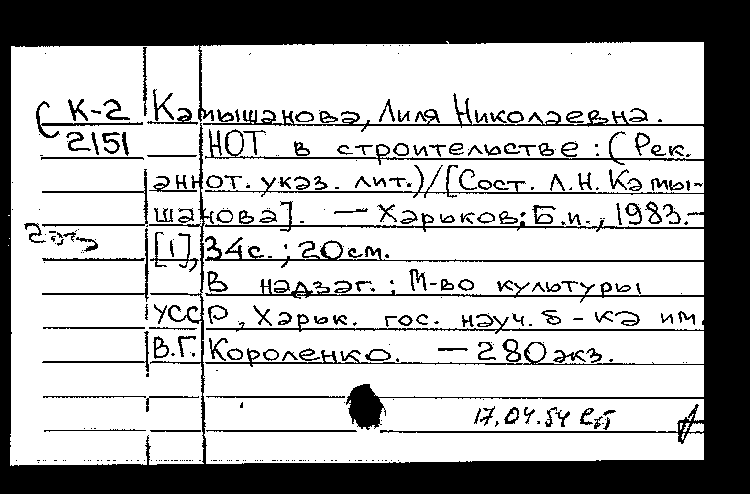 К-2 Камышанова, Лиля Николаевна.
2151 НОТ в строительстве: (Рек.
аннот. указ. лит.)/[Сост. Л.Н. Камы-
шанова]. — Харьков: Б.и., 1983.—
[1], 34с.; 20см.
В надзаг.: М-во культуры
УССР, Харьк. гос. науч. б-ка им.
В.Г. Короленко. — 280экз.
17.04.84